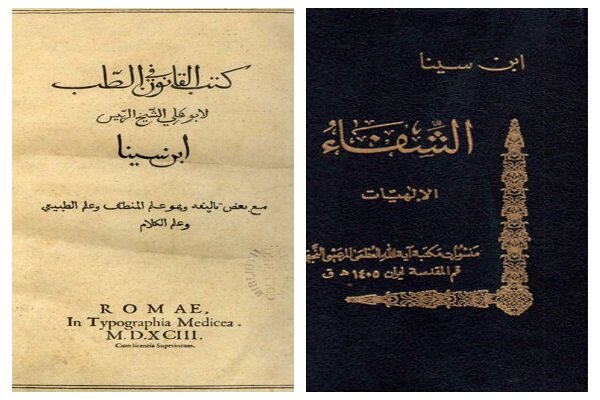 كتب القانون في الطب
لابو علي الشيخ الرئيس
ابن سينا
مع بعض تاليفه وهو علم المنطق وعلم الطبيعي
وعلم الكلام
ROMAE,
In Typographia Medicea.
M.D.XCIII.
Cum licentia Superiorum.
ابن سينا
الشِّفَاء
الالهيّات
منشورات مكتبة آية الله العظمى المرعشي
قم المقدسة ايران ١٤٠٥ ه ق